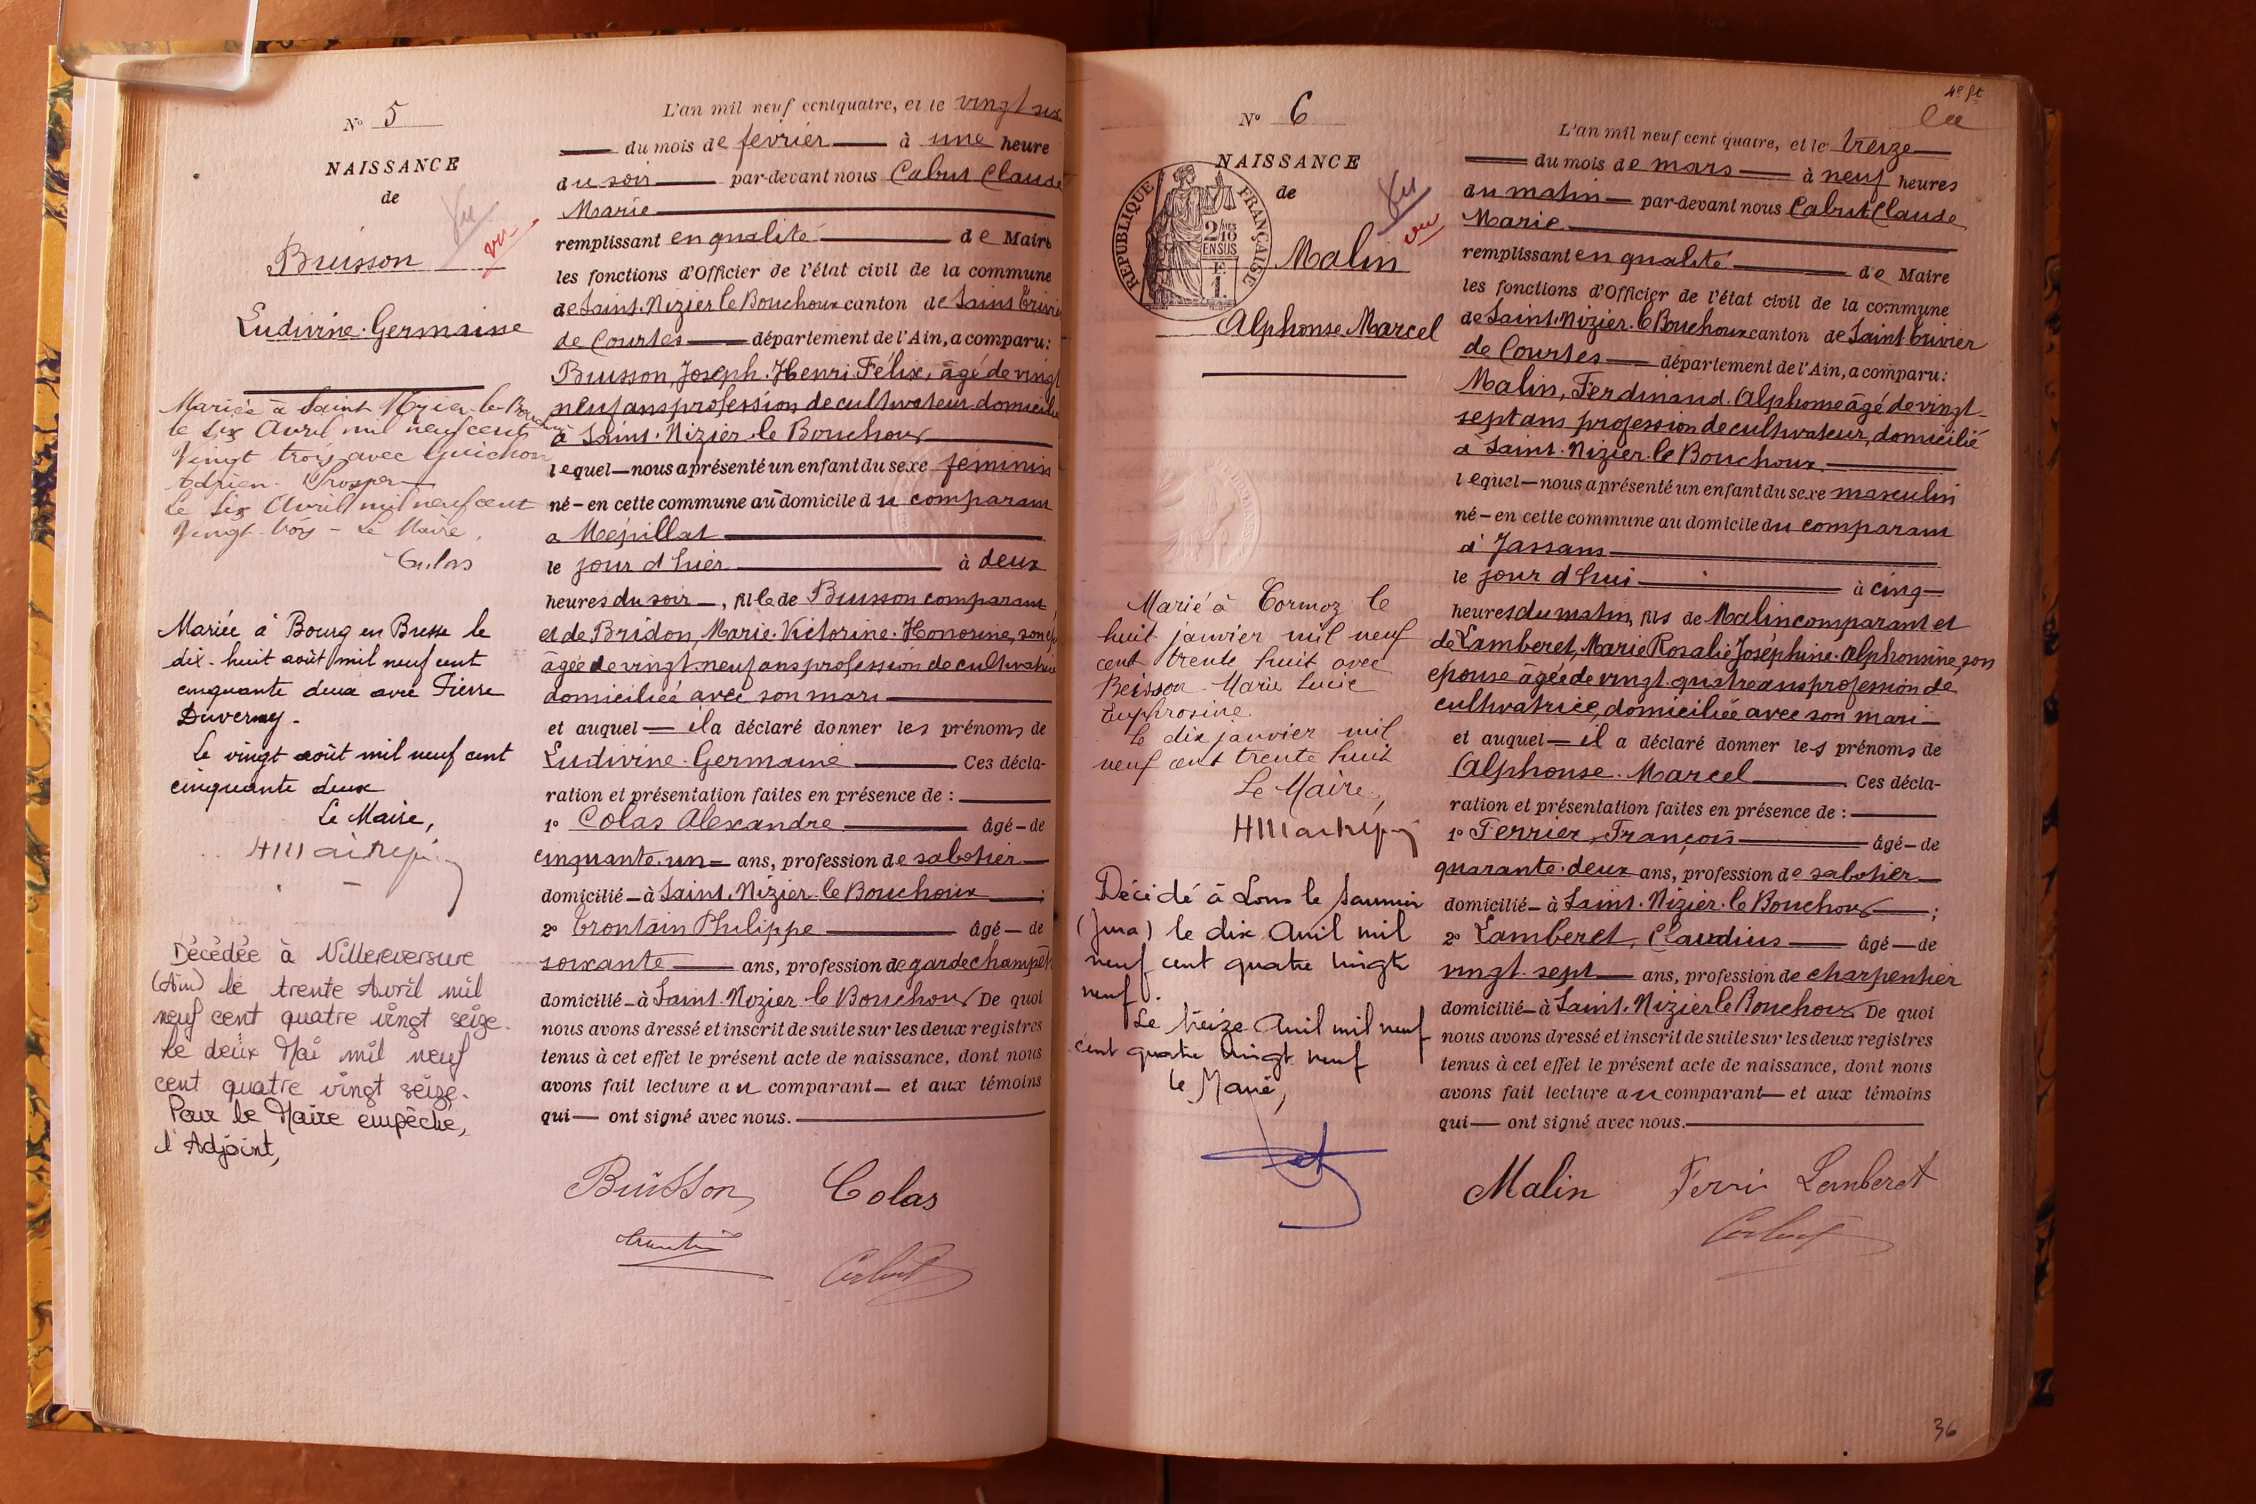 N° 5
NAISSANCE
de
Vu
vu
Buisson
Ludivine Germaine
Mariée à Saint-Nizier-le-Bouchoux
le six Avril mil neuf cent
Vingt trois avec Guichon
Adrien Prosper
Le six Avril mil neuf cent
Vingt-trois - Le Maire,
Colas
Mariée à Bourg en Bresse le
dix-huit août mil neuf cent
cinquante deux avec Pierre
Duvernay -
Le vingt août mil neuf cent
cinquante deux
Le Maire,
Décédée à Villereversure
(Ain) le trente Avril mil
neuf cent quatre vingt seize.
Le deux Mai mil neuf
cent quatre vingt seize.
Pour le Maire empêché,
l'Adjoint,
L'an mil neuf cent quatre, et le vingt six
du mois de février à une heure
du soir par-devant nous Cabut Claude
Marie
remplissant en qualité de Maire
les fonctions d'Officier de l'état civil de la commune
de Saint-Nizier le Bouchoux canton de Saint Trivier
de Courtes département de l'Ain, a comparu:
Buisson, Joseph Henri Félix, âgé de vingt
neuf ans profession de cultivateur domicilié
à Saint-Nizier-le Bouchoux
lequel — nous a présenté un enfant du sexe féminin
né — en cette commune au domicile du comparant
à Mépillat
le jour d'hier à deux
heures du soir —, fille de Buisson comparant,
et de Bridon, Marie Victorine Honorine, son ép
âgée de vingt-neuf ans profession de cultivatrice
domiciliée avec son mari
et auquel — il a déclaré donner les prénoms de
Ludivine Germaine Ces décla-
ration et présentation faites en présence de :
1° Colas Alexandre âgé — de
cinquante-un — ans, profession de sabotier
domicilié — à Saint-Nizier-le Bouchoux ;
2° Trontain Philippe âgé — de
soixante ans, profession de garde champêt
domicilié — à Saint-Nizier le Bouchoux De quoi
nous avons dressé et inscrit de suite sur les deux registres
tenus à cet effet le présent acte de naissance, dont nous
avons fait lecture au comparant — et aux témoins
qui — ont signé avec nous.
Buisson Colas
Cabut
4e ft
N° 6
NAISSANCE
de
REPUBLIQUE FRANÇAISE
2/10 EN SUS
1 F.
Vu
vu
Malin
Alphonse Marcel
Marié à Cormoz le
huit janvier mil neuf
cent trente huit avec
Beisson Marie Lucie
Euphrosine
Le dix janvier mil
neuf cent trente huit
Le Maire,
Décédé à Lons le Saunier
(Jura) le dix Avril mil
neuf cent quatre vingt
neuf.
Le treize Avril mil neuf
cent quatre vingt neuf
le Maire,
L'an mil neuf cent quatre, et le treize
du mois de mars à neuf heures
du matin — par-devant nous Cabut Claude
Marie
remplissant en qualité de Maire
les fonctions d'Officier de l'état civil de la commune
de Saint-Nizier-le Bouchoux canton de Saint Trivier
de Courtes département de l'Ain, a comparu:
Malin, Ferdinand Alphonse âgé de vingt-
sept ans profession de cultivateur, domicilié
à Saint-Nizier-le Bouchoux
lequel — nous a présenté un enfant du sexe masculin
né — en cette commune au domicile du comparant
à Jassans
le jour d'hui à cinq
heures du matin, fils de Malin comparant et
de Lamberet, Marie Rosalie Joséphine Alphonsine, son
épouse âgée de vingt-quatre ans profession de
cultivatrice, domiciliée avec son mari
et auquel — il a déclaré donner les prénoms de
Alphonse Marcel Ces décla-
ration et présentation faites en présence de :
1° Ferrier, François âgé — de
quarante-deux ans, profession de sabotier
domicilié — à Saint-Nizier-le Bouchoux ;
2° Lamberet, Claudius âgé — de
vingt-sept ans, profession de charpentier
domicilié — à Saint-Nizier le Bouchoux De quoi
nous avons dressé et inscrit de suite sur les deux registres
tenus à cet effet le présent acte de naissance, dont nous
avons fait lecture au comparant — et aux témoins
qui — ont signé avec nous.
Malin Ferri Lamberet
Cabut
36